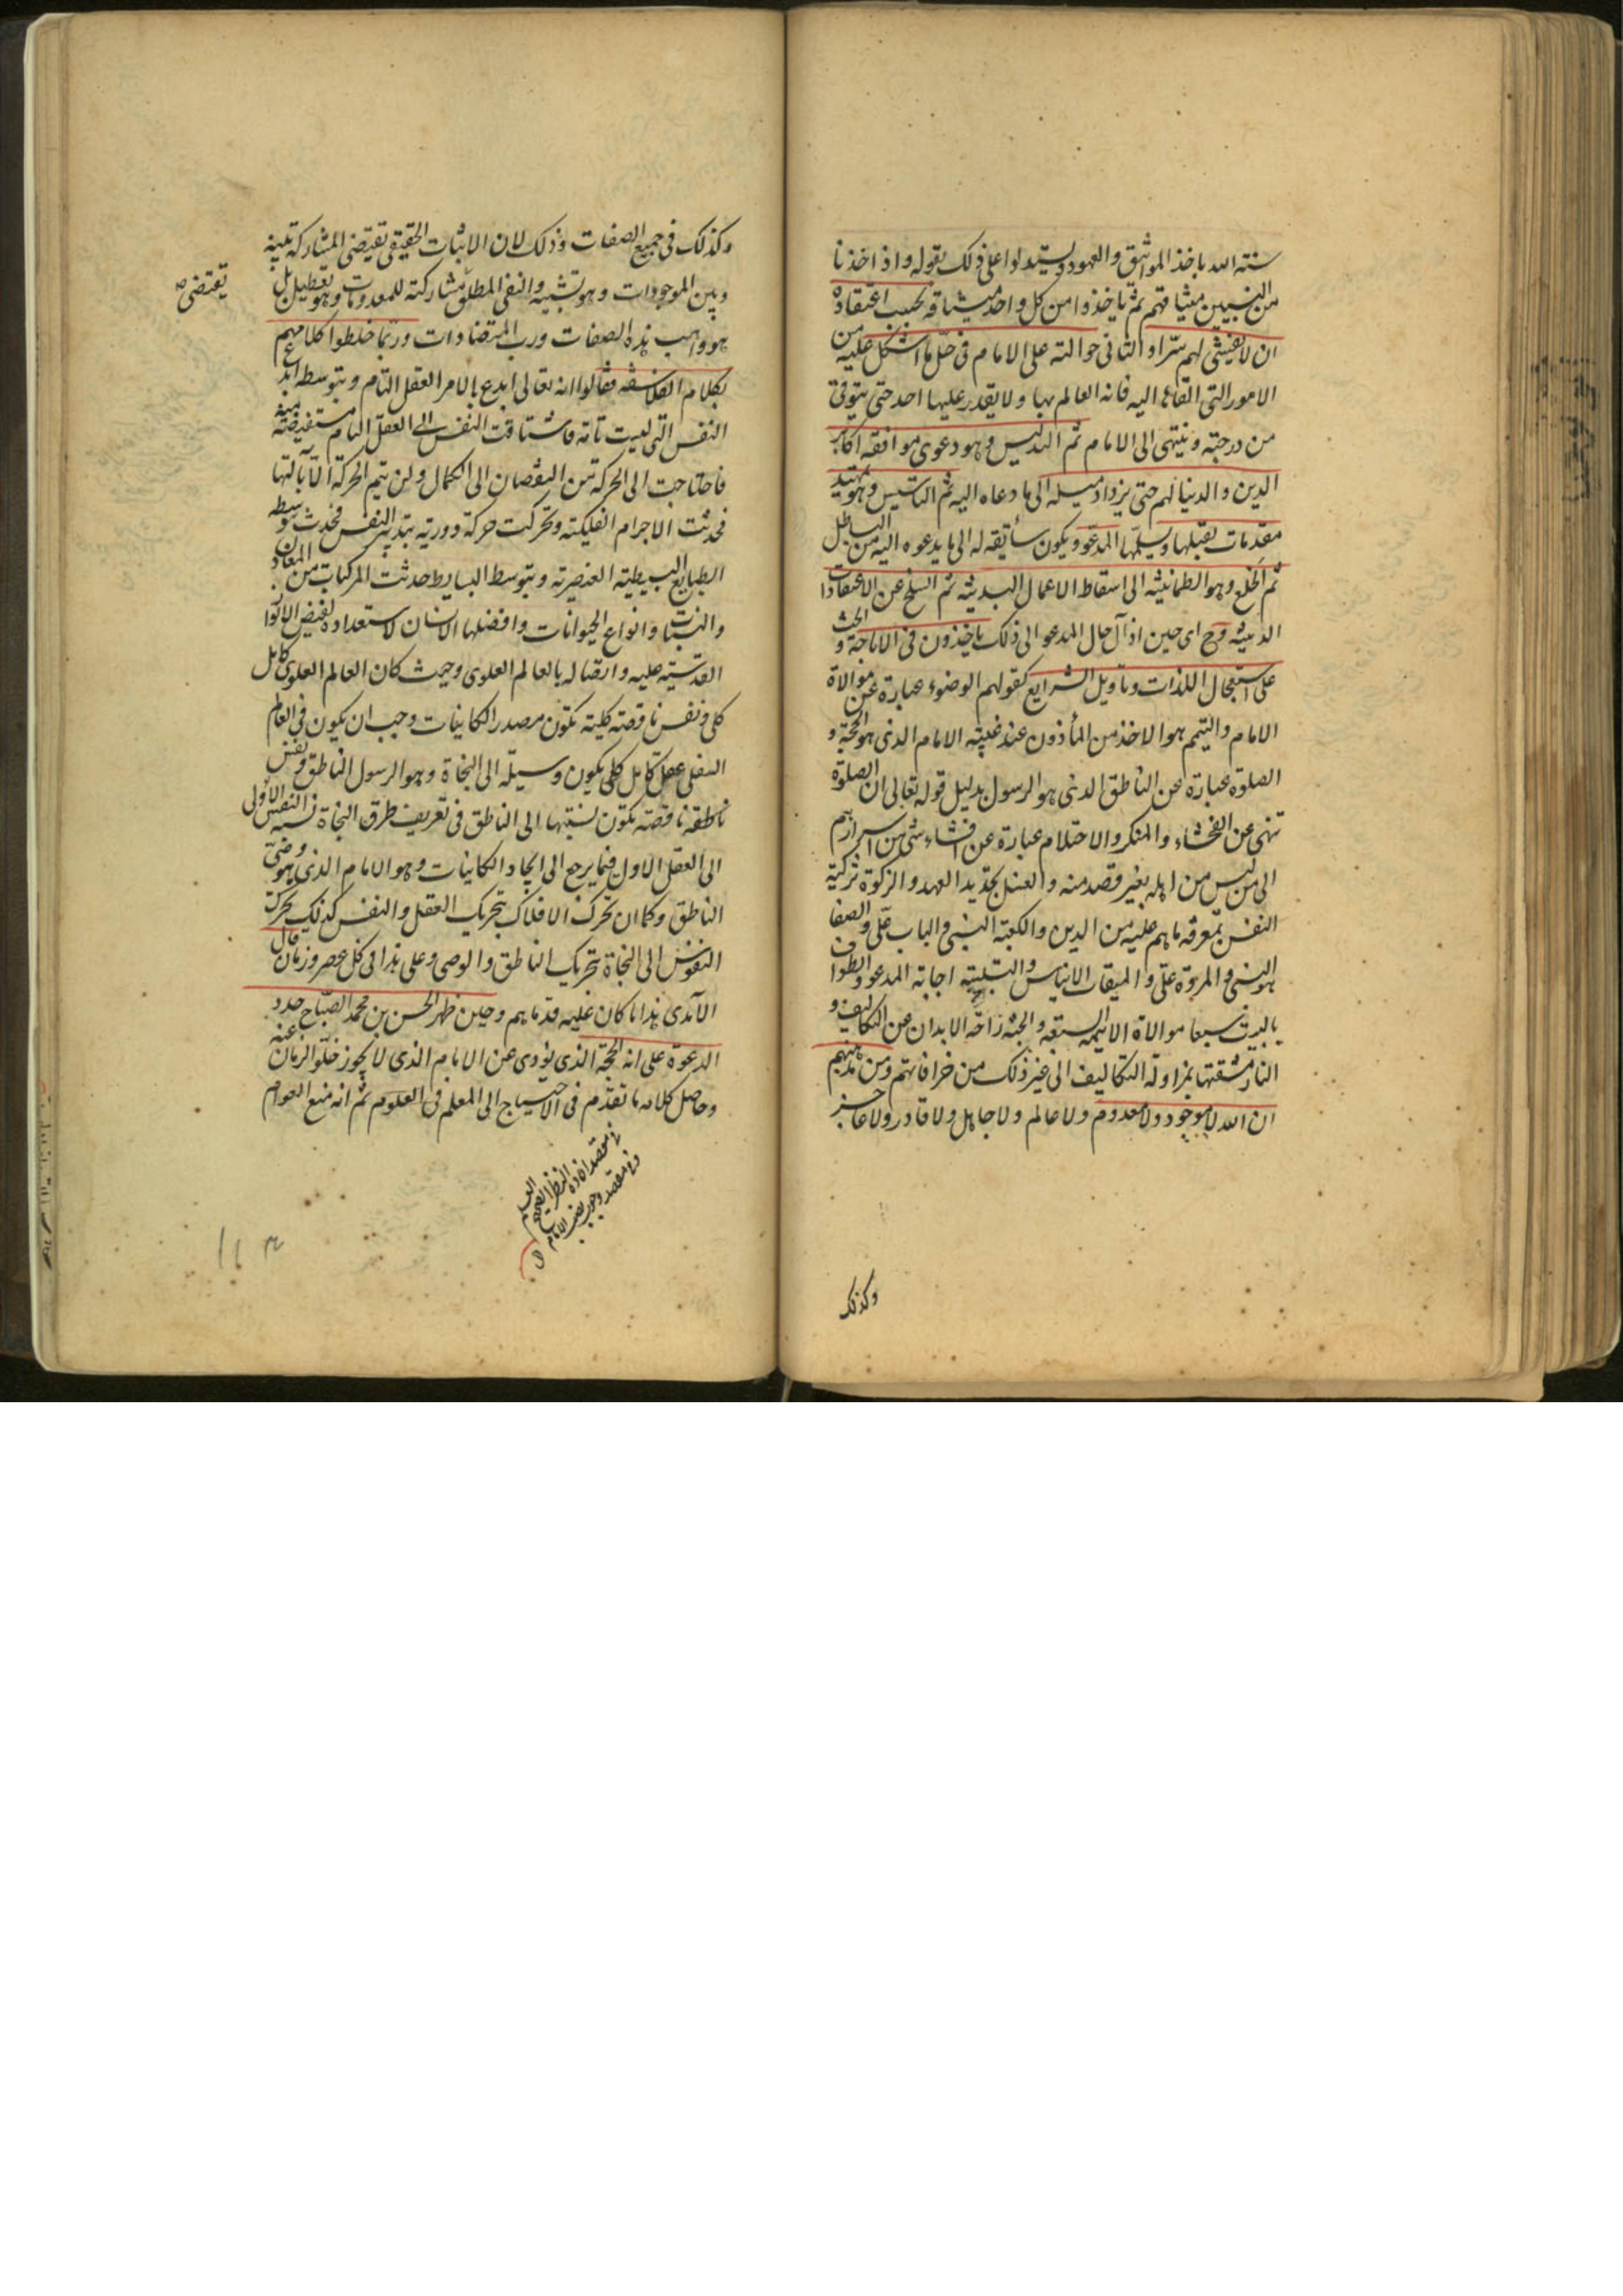 سنة الله باخذ المواثيق والعهود ويستدلوا على ذلك بقوله واذ اخذنا
من النبيين ميثاقهم ثم ياخذوا من كل واحد ميثاقه بحسب اعتقاده
ان لا يفشى لهم سرا والثانى حوالته على الامام فى حل ما اشكل عليه من
الامور التى القاها اليه فانه العالم بها ولا يقدر عليها احد حتى يترقى
من درجته وينتهى الى الامام ثم التدليس وهو دعوى موافقة اكابر
الدين والدنيا لهم حتى يزداد ميله الى ما دعاه اليه ثم التاسيس وهو تمهيد
مقدمات يقبلها ويسلمها المدعو ويكون سائقة له الى ما يدعوه اليه من الباطل
ثم الخلع وهو الطمانينة الى اسقاط الاعمال البدنية ثم السلخ عن الاعتقادات
الدينية وح اى حين اذ آل حال المدعو الى ذلك ياخذون فى الاباحة والحث
على استعجال اللذات وتاويل الشرايع كقولهم الوضوء عبارة عن موالاة
الامام والتيمم هو الاخذ من المأذون عند غيبة الامام الذى هو الحجة و
الصلوة عبارة عن الناطق الذى هو الرسول بدليل قوله تعالى ان الصلوة
تنهى عن الفحشاء والمنكر والاحتلام عبارة عن افشاء شئ من اسرارهم
الى من ليس من اهله بغير قصد منه والغسل تجديد العهد والزكوة تزكية
النفس بمعرفة ما هم عليه من الدين والكعبة النبى والباب على والصفا
هو النبى والمروة على والميقات الايناس والتلبية اجابة المدعو والطواف
بالبيت سبعا موالاة الائمة السبعة والجنة راحة الابدان عن التكاليف و
النار مشقتها بمزاولة التكاليف الى غير ذلك من خرافاتهم ومن مذهبهم
ان الله لا موجود ولا معدوم ولا عالم ولا جاهل ولا قادر ولا عاجز
وكذلك
وكذلك فى جميع الصفات وذلك لان الاثبات الحقيقى تقتضى المشاركة بينه
وبين الموجودات وهو تشبيه والنفى المطلق مشاركته للمعدومات وهو تعطيل بل
يقتضى صح
هو واهب هذه الصفات ورب المتضادات وربما خلطوا كلامهم
بكلام الفلاسفة فقالوا انه تعالى ابدع بالامر العقل التام وبتوسطه ابدع
النفس التى ليست تامة فاشتاقت النفس الى العقل التام مستفيضة منه
فاحتاجت الى الحركة من النقصان الى الكمال ولن يتم الحركة الا بآلتها
فحدثت الاجرام الفلكية وتحركت حركة دورية بتدبير النفس فحدث بتوسطه
الطبايع البسيطة العنصرية وبتوسط البسايط حدثت المركبات من المعادن
والنبات وانواع الحيوانات وافضلها الانسان لاستعداده لفيض الانوار
القدسية عليه واتصاله بالعالم العلوى وحيث كان العالم العلوى كامل
كلى ونفس ناقصة كلية تكون مصدر الكاينات وجب ان يكون فى العالم
السفلى عقل كامل كلى يكون وسيلة الى النجاة وهو الرسول الناطق ونفس
ناطقة ناقصة تكون نسبتها الى الناطق فى تعريف طرق النجاة نسبة النفس الاولى
الى العقل الاول فيما يرجع الى ايجاد الكاينات وهو الامام الذى هو وصى
الناطق وكما ان تحرك الافلاك بتحريك العقل والنفس كذلك تحرك
النفوس الى النجاة بتحريك الناطق والوصى وعلى هذا فى كل عصر وزمان قال
الآمدى هذا ما كان عليه قدماهم وحين ظهر الحسن بن محمد الصباح جدد
الدعوة على انه الحجة الذى يؤدى عن الامام الذى لا يجوز خلو الزمان عنه
وحاصل كلامه ما تقدم فى الاحتياج الى المعلم فى العلوم ثم انه منع العوام
فى مقصد افادة النظر الصحيح العلم
وفى مقصد وجوب نصب الامام